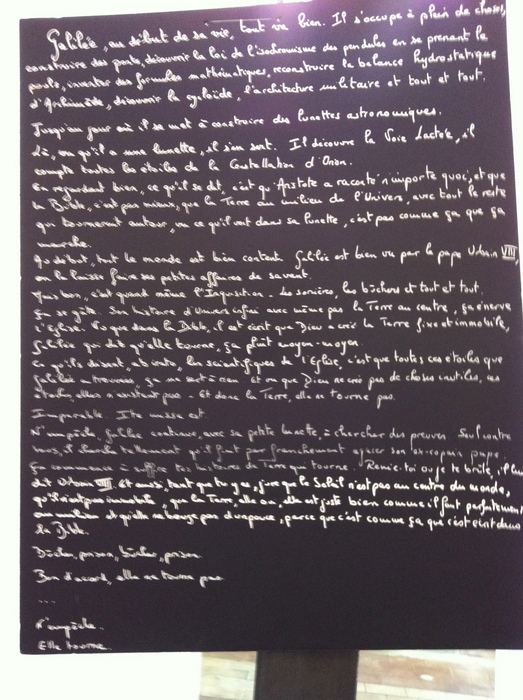 Galilée, au début de sa vie, tout va bien. Il s'occupe à plein de choses,
construire des ponts, découvrir la loi de l'isochronisme des pendules en se prenant le
pouls, inventer des formules mathématiques, reconstruire la balance hydrostatique
d'Archimède, découvrir la cycloïde, l'architecture militaire et tout et tout.
Jusqu'au jour où il se met à construire des lunettes astronomiques.
Là, vu qu'il a une lunette, il s'en sert. Il découvre la Voie Lactée, il
compte toutes les étoiles de la Constellation d'Orion.
En regardant bien, ce qu'il se dit, c'est qu'Aristote a raconté n'importe quoi, et que
la Bible, c'est pas mieux, que la Terre au milieu de l'Univers, avec tout le reste
qui tournerait autour, vu ce qu'il voit dans sa lunette, c'est pas comme ça que ça
marche.
Au début, tout le monde est bien content. Galilée est bien vu par le pape Urbain VIII,
on le laisse faire ses petites affaires de savant.
Mais bon, c'est quand même l'Inquisition. Les sorcières, les bûchers et tout et tout.
Ça se gâte. Son histoire d'Univers infini avec même pas la Terre au centre, ça énerve
l'Eglise. Vu que dans la Bible, il est écrit que Dieu a créé la Terre fixe et immobile,
Galilée qui dit qu'elle tourne, ça plaît moyen-moyen.
Ce qu'ils disent, les scientifiques de l'Eglise, c'est que toutes ces étoiles que
Galilée a trouvées, ça ne sert à rien. Et vu que Dieu ne crée pas de choses inutiles, ces
étoiles, elles n'existent pas. Et donc la Terre, elle ne tourne pas.
Imparable. Ite missa est.
N'empêche, Galilée continue, avec sa petite lunette, à chercher des preuves. Seul contre
tous, il cherche tellement qu'il finit par franchement agacer son ex-copain pape.
Ça commence à suffire tes histoires de Terre qui tourne. Renie-toi ou je te brûle, il lui
dit Urbain VIII. Et aussi, tant que tu y es, jure que le Soleil n'est pas au centre du monde,
qu'il n'est pas immobile, que la Terre, elle est juste bien comme il faut parfaitement
au milieu et qu'elle ne bouge pas d'un pouce, parce que c'est comme ça que c'est écrit dans
la Bible.
Bûcher, prison, bûcher, prison
Bon d'accord, elle ne tourne pas
...
N'empêche.
Elle tourne.